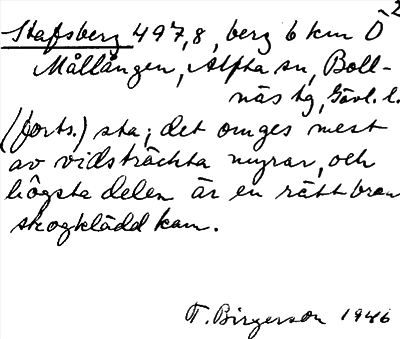 2
Stafsberg 497,8, berg 6 km Ö
Mållången, Alfta sn, Boll-
näs tg, Gävl. l.
(forts.) sta; det omges mest
av vidsträckta myrar, och
högsta delen är en rätt brant
skogklädd kam.
T. Birgerson 1946